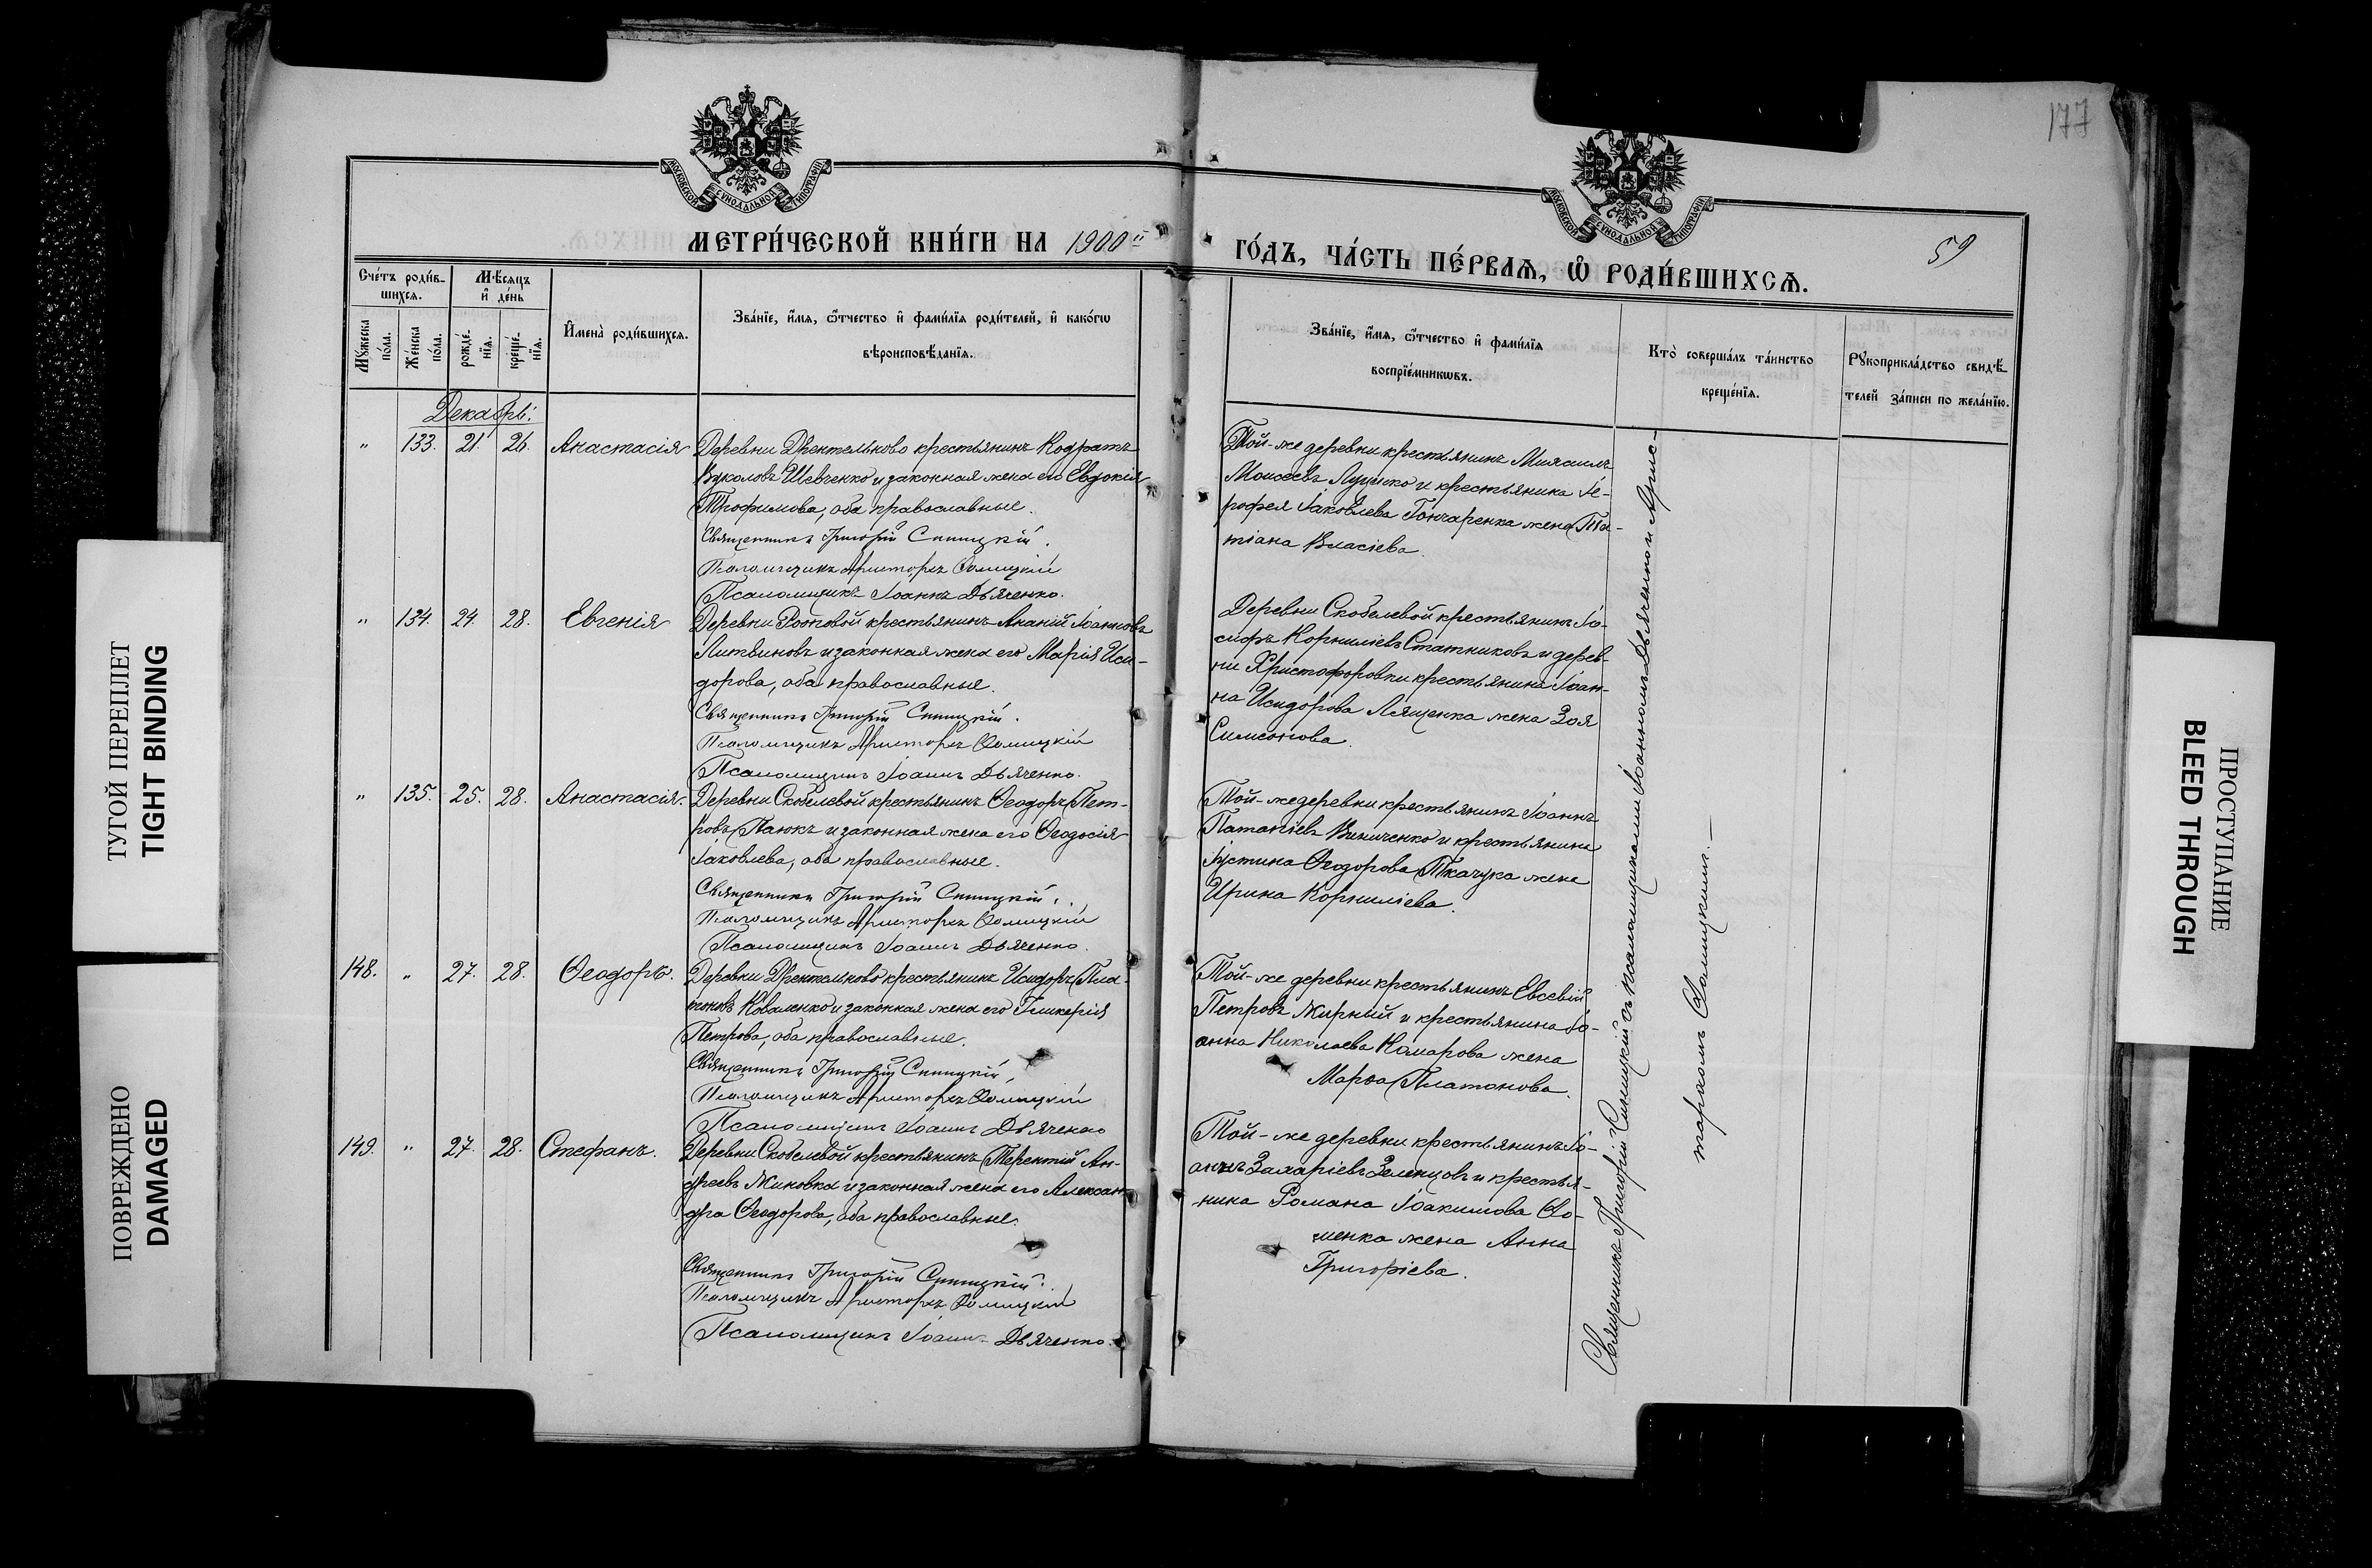 177
МОСКОВСКОЙ СѴНОДАЛЬНОЙ ТИПОГРАФІИ
МОСКОВСКОЙ СѴНОДАЛЬНОЙ ТИПОГРАФІИ
МЕТРИ́ЧЕСКОЙ КНИ́ГИ НА 1900й
ГО́ДЪ, ЧА́СТЬ ПЕ́РВАѦ, Ѡ҆ РОДИ́ВШИХСѦ.
59
Сче́тъ роди́в-
шихсѧ.
Мѣ́сяцъ
и҆ де́нь
Мꙋжеска
по́ла.
Же́нска
по́ла.
рожде́-
нїѧ.
креще-
нїѧ.
И҆мена̀ роди́вшихсѧ.
Зва́нїе, и҆́мѧ, ѻ҆́тчество и҆ фами́лїѧ роди́телей, и҆ како́гѡ
вѣроисповѣ́данїѧ.
Зва́нїе, и҆́мѧ, ѻ҆́тчество и҆ фами́лїѧ
воспрїе́мникѡвъ.
Кто̀ соверша́лъ та́инство
креще́нїѧ.
Рꙋкоприкла́дство свидѣ́-
телей за́писи по жела́нїю.
Декабрь:
" 133. 21. 26. Анастасія
Деревни Дрентельново крестьянинъ Кодратъ
Вуколовъ Шевченко и законная жена его Евдокія
Трофимова, оба православные.
Священникъ Григорій Синицкій.
Псаломщикъ Аристархъ Ѳомицкій
Псаломщикъ Іоаннъ Дьяченко.
Той-же деревни крестьянинъ
Моисеевъ Луценко и крестьянина Іе-
рофея Іаковлева Гончаренка жена Та-
тіана Власіева.
" 134. 24. 28. Евгенія
Деревни Ротовой крестьянинъ Ананій Іоанновъ
Литвиновъ и законная жена его Марія Иси-
дорова, оба православные.
Священникъ Григорій Синицкій.
Псаломщикъ Аристархъ Ѳомицкій
Псаломщикъ Іоаннъ Дьяченко.
Деревни Скобелевой крестьянинъ Іо-
сифъ Корниліевъ Статниковъ и дерев-
ни Христофоровки крестьянина Іоан-
на Исидорова Лященка жена Зоя
Симеонова.
" 135. 25. 28. Анастасія.
Деревни Скобелевой крестьянинъ Ѳеодоръ Пет-
ровъ Паюкъ и законная жена его Ѳеодосія
Іаковлева, оба православные.
Священникъ Григорій Синицкій.
Псаломщикъ Аристархъ Ѳомицкій
Псаломщикъ Іоаннъ Дьяченко.
Той-же деревни крестьянинъ Іоаннъ
Патапіевъ Виниченко и крестьянина
Іустина Ѳеодорова Ткачука жена
Ирина Корниліева.
148. " 27. 28. Ѳеодоръ.
Деревни Дрентельново крестьянинъ Исидоръ Пла-
тоновъ Коваленко и законная жена его Гликерія
Петрова, оба православные.
Священникъ Григорій Синицкій,
Псаломщикъ Аристархъ Ѳомицкій
Псаломщикъ Іоаннъ Дьяченко
Той-же деревни крестьянинъ Евсевій
Петровъ Жирный и крестьянина Іо-
анна Николаева Комарова жена
Марѳа Платонова.
149. " 27. 28. Стефанъ.
Деревни Скобелевой крестьянинъ Терентій Ан-
дреевъ Жиновка и законная жена его Алексан-
дра Ѳеодорова, оба православные.
Священникъ Григорій Синицкій.
Псаломщикъ Аристархъ Ѳомицкій
Псаломщикъ Іоаннъ Дьяченко.
Той-же деревни крестьянинъ Іо-
аннъ Захаріевъ Зеленцовъ и крестья-
нина Романа Іоакимова Ѳо-
менка жена Анна
Григоріева.
Священникъ Григорій Синицкій съ псаломщиками Іоанномъ Дьяченко и Арис-
тархомъ Ѳомицкимъ.—
ТУГОЙ ПЕРЕПЛЕТ
TIGHT BINDING
ПОВРЕЖДЕНО
DAMAGED
ПРОСТУПАНИЕ
BLEED THROUGH